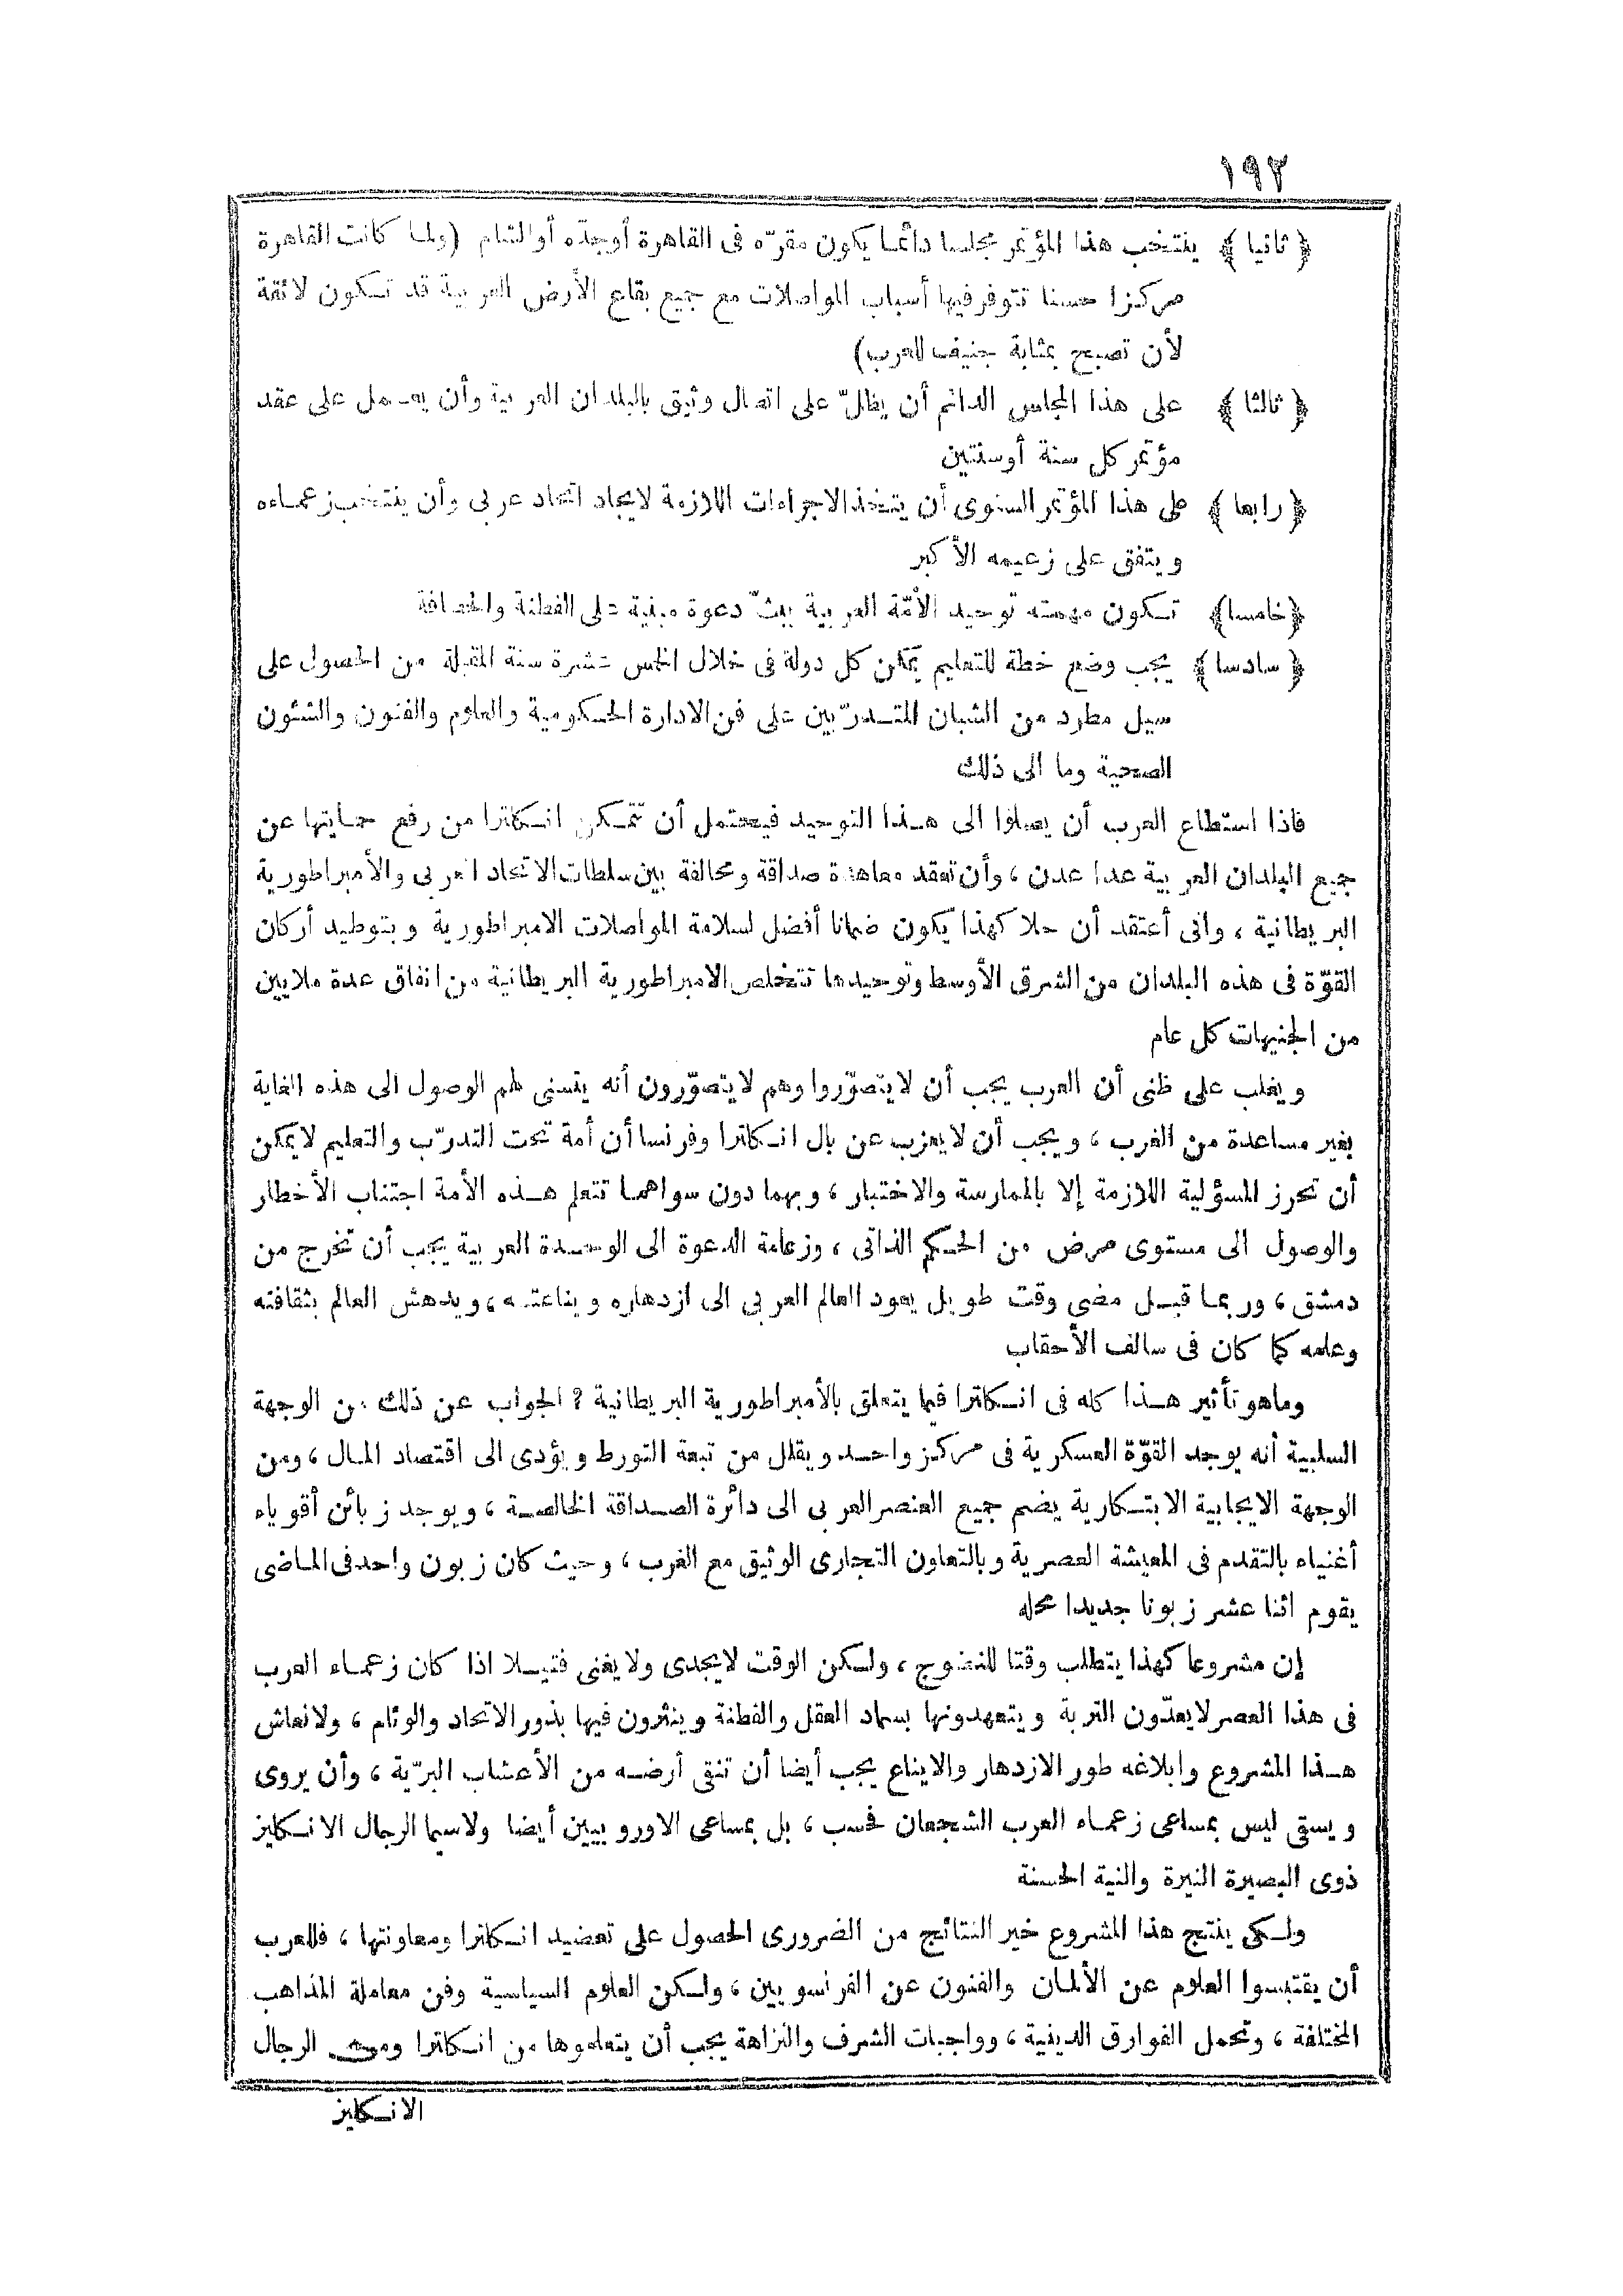 ١٩٢
﴿ ثانيا ﴾ ينتخب هذا المؤتمر مجلسا دائما يكون مقرّه فى القاهرة أوجدّه أوالشام (ولما كانت القاهرة
مركزا حسنا تتوفرفيها أسباب المواصلات مع جميع بقاع الأرض العربية قد تكون لائقة
لأن تصبح بمثابة جنيف للعرب)
﴿ ثالثا ﴾ على هذا المجلس الدائم أن يظلّ على اتصال وثيق بالبلدان العربية وأن يعمل على عقد
مؤتمر كل سنة أوسنتين
﴿ رابعا ﴾ على هذا المؤتمر السنوى أن يتخذ الاجراءات اللازمة لايجاد اتحاد عربى وأن ينتخب زعماءه
ويتفق على زعيمه الأكبر
﴿خامسا﴾ تكون مهمته توحيد الأمّة العربية ببثّ دعوة مبنية على الفطنة والحصافة
﴿ سادسا ﴾ يجب وضع خطة للتعليم تمكن كل دولة فى خلال الخمس عشرة سنة المقبلة من الحصول على
سيل مطرد من الشبان المتدرّبين على فن الادارة الحكومية والعلوم والفنون والشئون
الصحية وما الى ذلك
فاذا استطاع العرب أن يصلوا الى هذا التوحيد فيحتمل أن تتمكن انكلترا من رفع حمايتها عن
جميع البلدان العربية عدا عدن ، وأن تعقد معاهدة صداقة ومحالفة بين سلطات الاتحاد العربى والأمبراطورية
البريطانية ، وانى أعتقد أن حلا كهذا يكون ضمانا أفضل لسلامة المواصلات الامبراطورية وبتوطيد أركان
القوّة فى هذه البلدان من الشرق الأوسط وتوحيدها تتخلص الامبراطورية البريطانية من انفاق عدة ملايين
من الجنيهات كل عام
ويغلب على ظنى أن العرب يجب أن لايتصوّروا وهم لايتصوّرون أنه يتسنى لهم الوصول الى هذه الغاية
بغير مساعدة من الغرب ، ويجب أن لايعزب عن بال انكلترا وفرنسا أن أمة تحت التدرّب والتعليم لايمكن
أن تحرز المسؤلية اللازمة إلا بالممارسة والاختبار ، وبهما دون سواهما تتعلم هذه الأمة اجتناب الأخطار
والوصول الى مستوى مرض من الحكم الذاتى ، وزعامة الدعوة الى الوحدة العربية يجب أن تخرج من
دمشق ، وربما قبل مضى وقت طويل يعود العالم العربى الى ازدهاره ويناعته ، ويدهش العالم بثقافته
وعلمه كما كان فى سالف الأحقاب
وماهو تأثير هذا كله فى انكلترا فيما يتعلق بالأمبراطورية البريطانية ؟ الجواب عن ذلك من الوجهة
السلبية أنه يوجد القوّة العسكرية فى مركز واحد ويقلل من تبعة التورط ويؤدى الى اقتصاد المال ، ومن
الوجهة الايجابية الابتكارية يضم جميع العنصرالعربى الى دائرة الصداقة الخالصة ، ويوجد زبائن أقوياء
أغنياء بالتقدم فى المعيشة العصرية وبالتعاون التجارى الوثيق مع الغرب ، وحيث كان زبون واحد فى الماضى
يقوم اثنا عشر زبونا جديدا محله
إن مشروعا كهذا يتطلب وقتا للنضوج ، ولكن الوقت لايجدى ولايغنى فتيلا اذا كان زعماء العرب
فى هذا العصر لايعدّون التربة ويتعهدونها بسماد العقل والفطنة وينثرون فيها بذور الاتحاد والوئام ، ولانعاش
هذا المشروع وابلاغه طور الازدهار والايناع يجب أيضا أن تنقى أرضه من الأعشاب البرّية ، وأن يروى
ويسقى ليس بمساعى زعماء العرب الشجعان فحسب ، بل بمساعى الاوروبيين أيضا ولاسيما الرجال الانكليز
ذوى البصيرة النيرة والنية الحسنة
ولكى ينتج هذا المشروع خير النتائج من الضرورى الحصول على تعضيد انكلترا ومعاونتها ، فللعرب
أن يقتبسوا العلوم عن الألمان والفنون عن الفرنسويين ، ولكن العلوم السياسية وفن معاملة المذاهب
المختلفة ، وتحمل الفوارق الدينية ، وواجبات الشرف والنزاهة يجب أن يتعلموها من انكلترا ومن الرجال
الانكليز